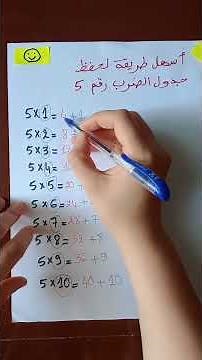 أسهل طريقة لحفظ
جدول الضرب رقم 5
5×1=
5×2= 8
5×3=
5×4=
5×5= 20
5×6= 24
5×7= 28+7
5×8= 32+8
5×9= 36+9
5×10= 40+10